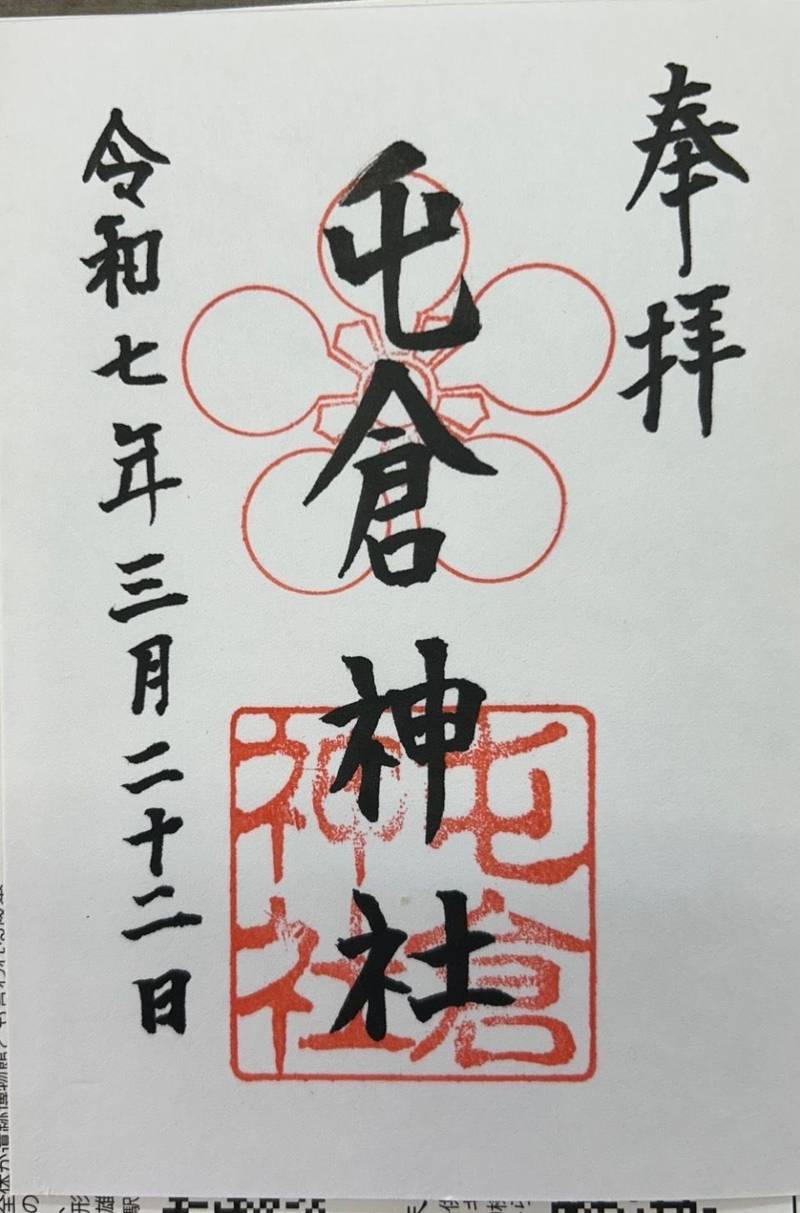 奉拝
屯倉神社
令和七年三月二十二日
屯倉
神社